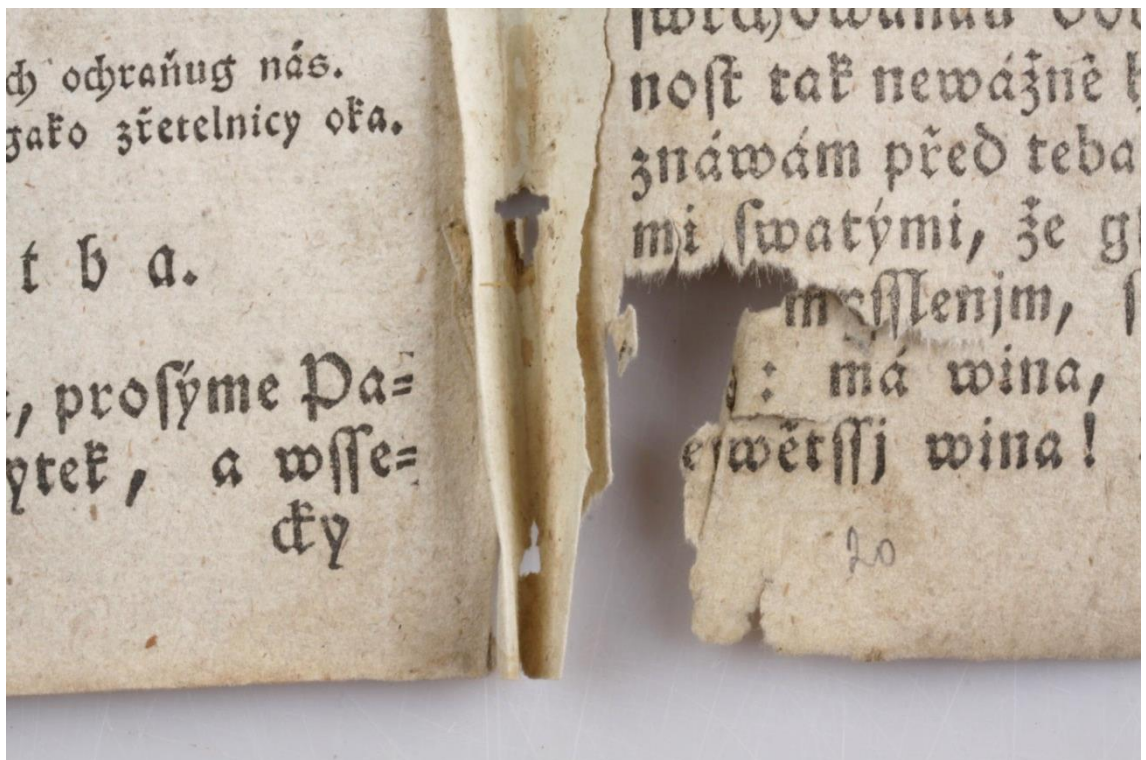 ch ochraňug nás.
gako zřetelnicy oka.
t b a.
, prosýme Pa=
ytek, a wsse=
cky
nost tak newážně
znáwám před teba
mi swatými, že
mysslenjm,
: má wina,
ejwětssj wina!
20